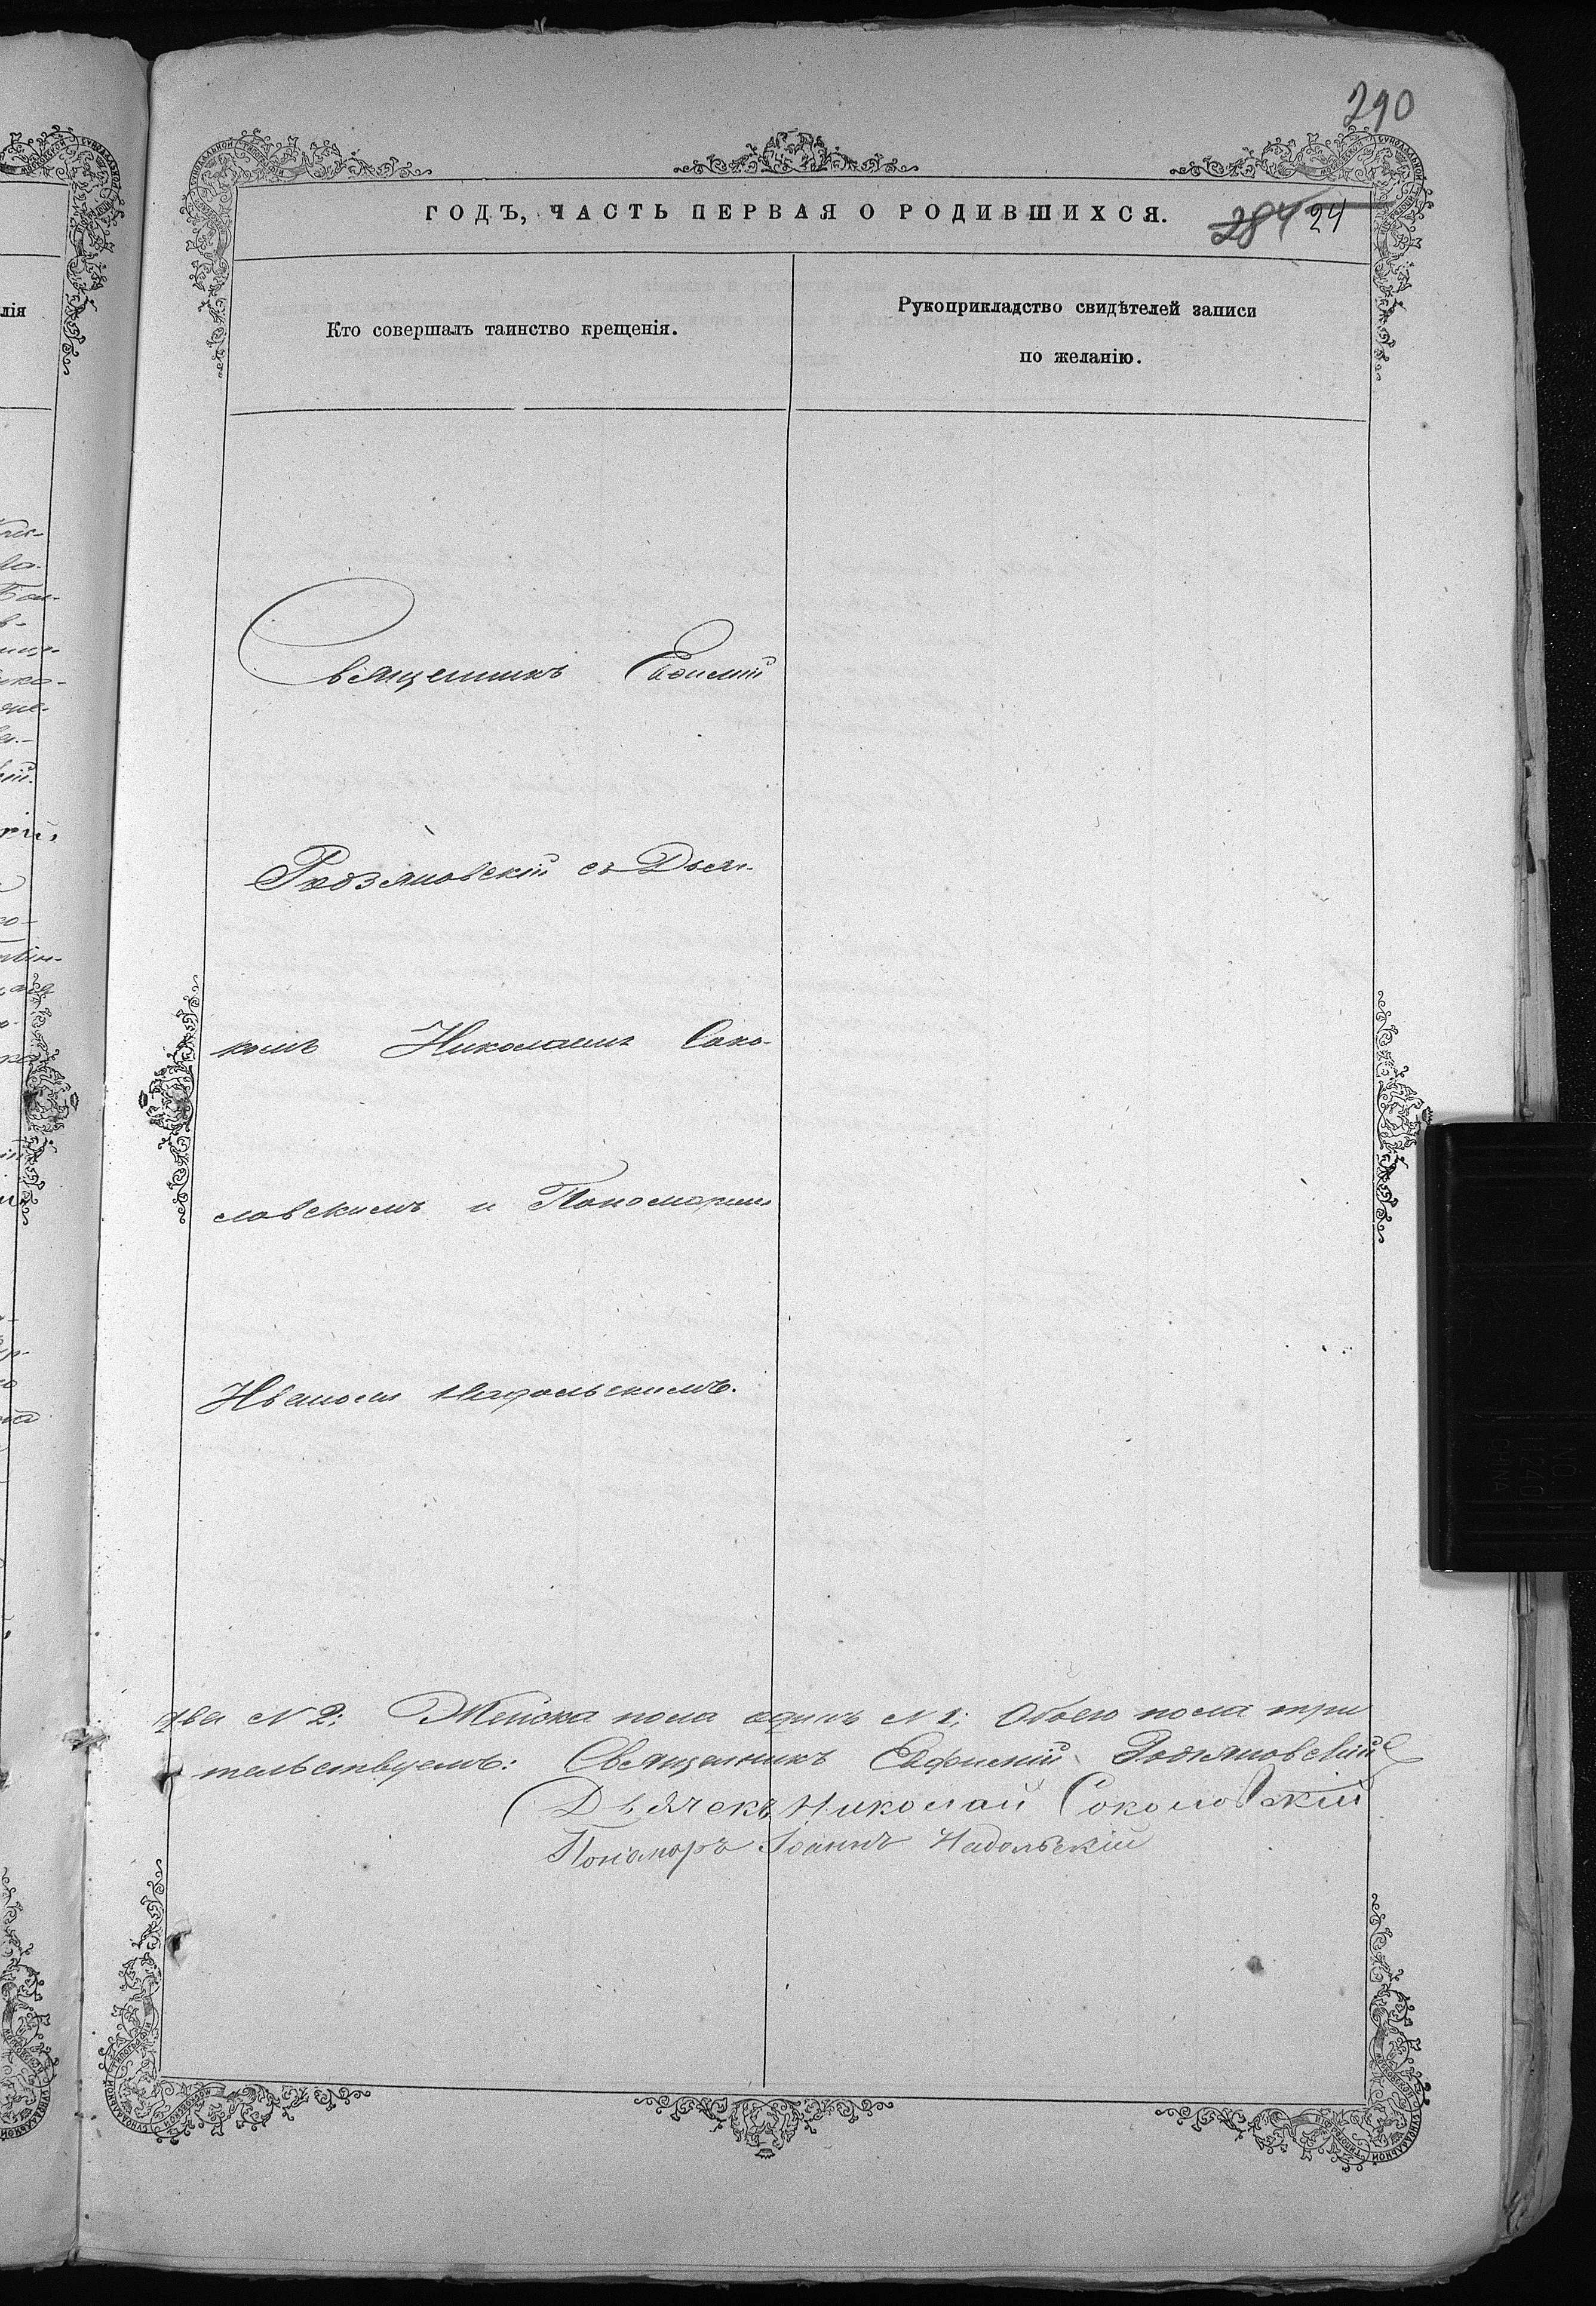 290
ГОДЪ, ЧАСТЬ ПЕРВАЯ О РОДИВШИХСЯ.
284 24
Кто совершалъ таинство крещенія.
Рукоприкладство свидѣтелей записи
по желанію.
Священникъ Евфимій
Родзяновскій съ Дьяч-
комъ Николаемъ Соко-
ловскимъ и Пономаремъ
Иваномъ Надольскимъ.
два N 2; Женска пола одинъ N 1; Обоего пола три
тельствуемъ: Священникъ Евфимій Родзяновскій
Дьячекъ Николай Соколовскій
Пономаръ Іоаннъ Надольскій